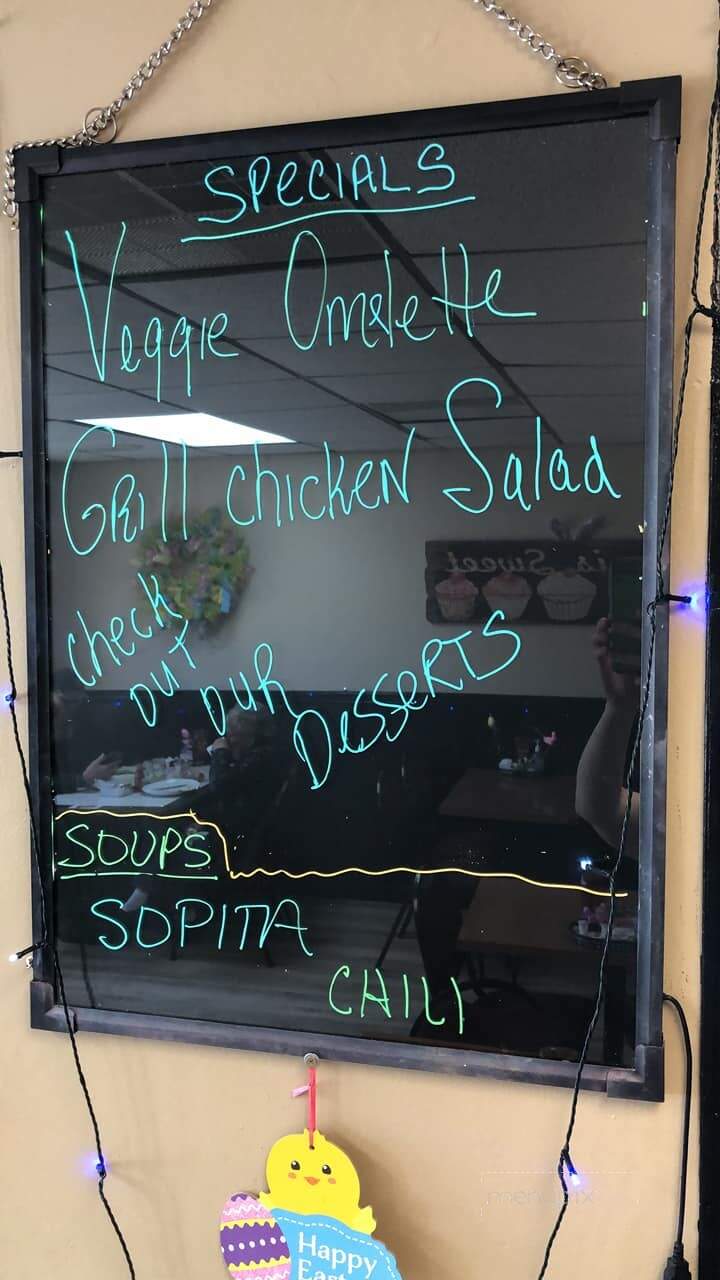 SPECIALS
Veggie Omelette
GRill chicken Salad
check
out our
Desserts
SOUPS
SOPITA
CHILI
is Sweet
Happy
East